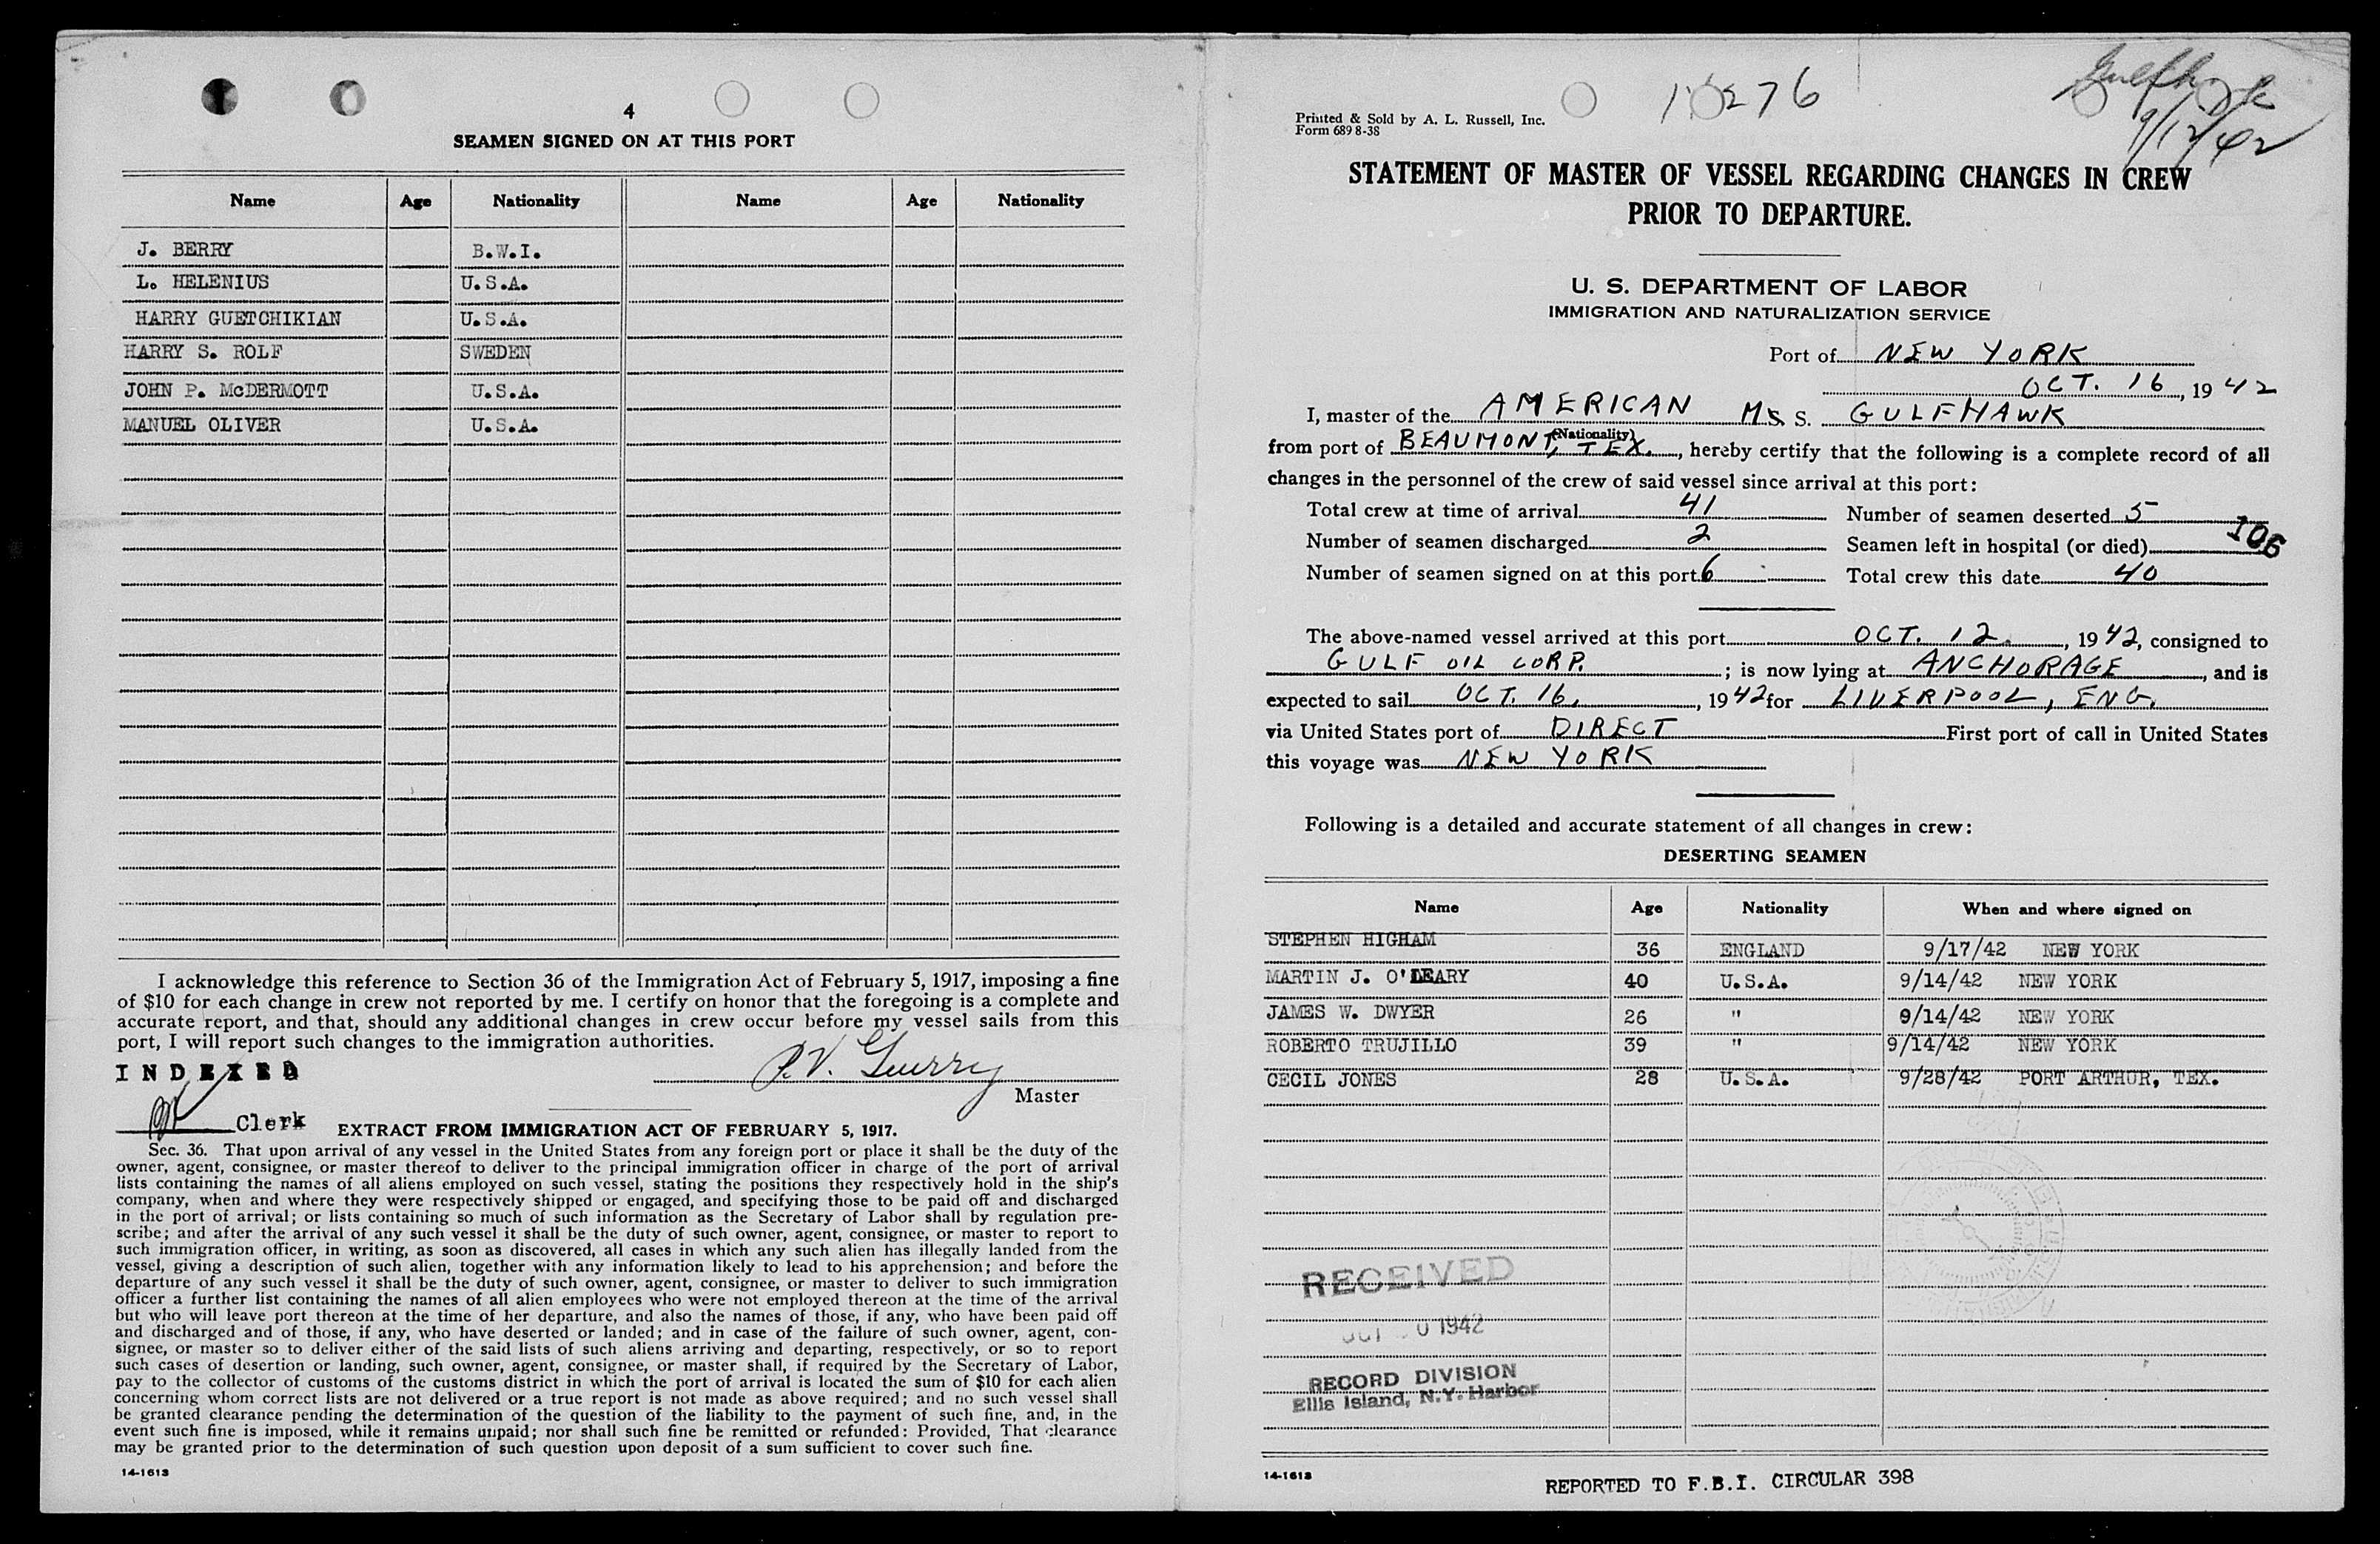 4
SEAMEN SIGNED ON AT THIS PORT
Name Age Nationality Name Age Nationality
J. BERRY B.W.I.
L. HELENIUS U.S.A.
HARRY GUETCHIKIAN U.S.A.
HARRY S. ROLF SWEDEN
JOHN P. McDERMOTT U.S.A.
MANUEL OLIVER U.S.A.
I acknowledge this reference to Section 36 of the Immigration Act of February 5, 1917, imposing a fine
of $10 for each change in crew not reported by me. I certify on honor that the foregoing is a complete and
accurate report, and that, should any additional changes in crew occur before my vessel sails from this
port, I will report such changes to the immigration authorities.
INDEXED
P.V. Guerry
Master
Clerk
EXTRACT FROM IMMIGRATION ACT OF FEBRUARY 5, 1917.
Sec. 36. That upon arrival of any vessel in the United States from any foreign port or place it shall be the duty of the
owner, agent, consignee, or master thereof to deliver to the principal immigration officer in charge of the port of arrival
lists containing the names of all aliens employed on such vessel, stating the positions they respectively hold in the ship's
company, when and where they were respectively shipped or engaged, and specifying those to be paid off and discharged
in the port of arrival; or lists containing so much of such information as the Secretary of Labor shall by regulation pre-
scribe; and after the arrival of any such vessel it shall be the duty of such owner, agent, consignee, or master to report to
such immigration officer, in writing, as soon as discovered, all cases in which any such alien has illegally landed from the
vessel, giving a description of such alien, together with any information likely to lead to his apprehension; and before the
departure of any such vessel it shall be the duty of such owner, agent, consignee, or master to deliver to such immigration
officer a further list containing the names of all alien employees who were not employed thereon at the time of the arrival
but who will leave port thereon at the time of her departure, and also the names of those, if any, who have been paid off
and discharged and of those, if any, who have deserted or landed; and in case of the failure of such owner, agent, con-
signee, or master so to deliver either of the said lists of such aliens arriving and departing, respectively, or so to report
such cases of desertion or landing, such owner, agent, consignee, or master shall, if required by the Secretary of Labor,
pay to the collector of customs of the customs district in which the port of arrival is located the sum of $10 for each alien
concerning whom correct lists are not delivered or a true report is not made as above required; and no such vessel shall
be granted clearance pending the determination of the question of the liability to the payment of such fine, and, in the
event such fine is imposed, while it remains unpaid; nor shall such fine be remitted or refunded: Provided, That clearance
may be granted prior to the determination of such question upon deposit of a sum sufficient to cover such fine.
14-1613
Printed & Sold by A. L. Russell, Inc.
Form 689 8-38
Gulfhawk
9/12/42
STATEMENT OF MASTER OF VESSEL REGARDING CHANGES IN CREW
PRIOR TO DEPARTURE.
U. S. DEPARTMENT OF LABOR
IMMIGRATION AND NATURALIZATION SERVICE
Port of NEW YORK
OCT. 16, 1942
I, master of the AMERICAN M.S. S. GULFHAWK
(Nationality)
from port of BEAUMONT, TEX., hereby certify that the following is a complete record of all
changes in the personnel of the crew of said vessel since arrival at this port:
Total crew at time of arrival 41 Number of seamen deserted 5
106
Number of seamen discharged 2 Seamen left in hospital (or died)
Number of seamen signed on at this port 6 Total crew this date 40
The above-named vessel arrived at this port OCT. 12, 1942, consigned to
GULF OIL CORP. ; is now lying at ANCHORAGE, and is
expected to sail OCT. 16, 1942 for LIVERPOOL, ENG.
via United States port of DIRECT First port of call in United States
this voyage was NEW YORK
Following is a detailed and accurate statement of all changes in crew:
DESERTING SEAMEN
Name Age Nationality When and where signed on
STEPHEN HIGHAM 36 ENGLAND 9/17/42 NEW YORK
MARTIN J. O'LEARY 40 U.S.A. 9/14/42 NEW YORK
JAMES W. DWYER 26 " 9/14/42 NEW YORK
ROBERTO TRUJILLO 39 " 9/14/42 NEW YORK
CECIL JONES 28 U.S.A. 9/28/42 PORT ARTHUR, TEX.
RECEIVED
1942
RECORD DIVISION
Ellis Island, N.Y. Harbor
14-1613
REPORTED TO F.B.I. CIRCULAR 398